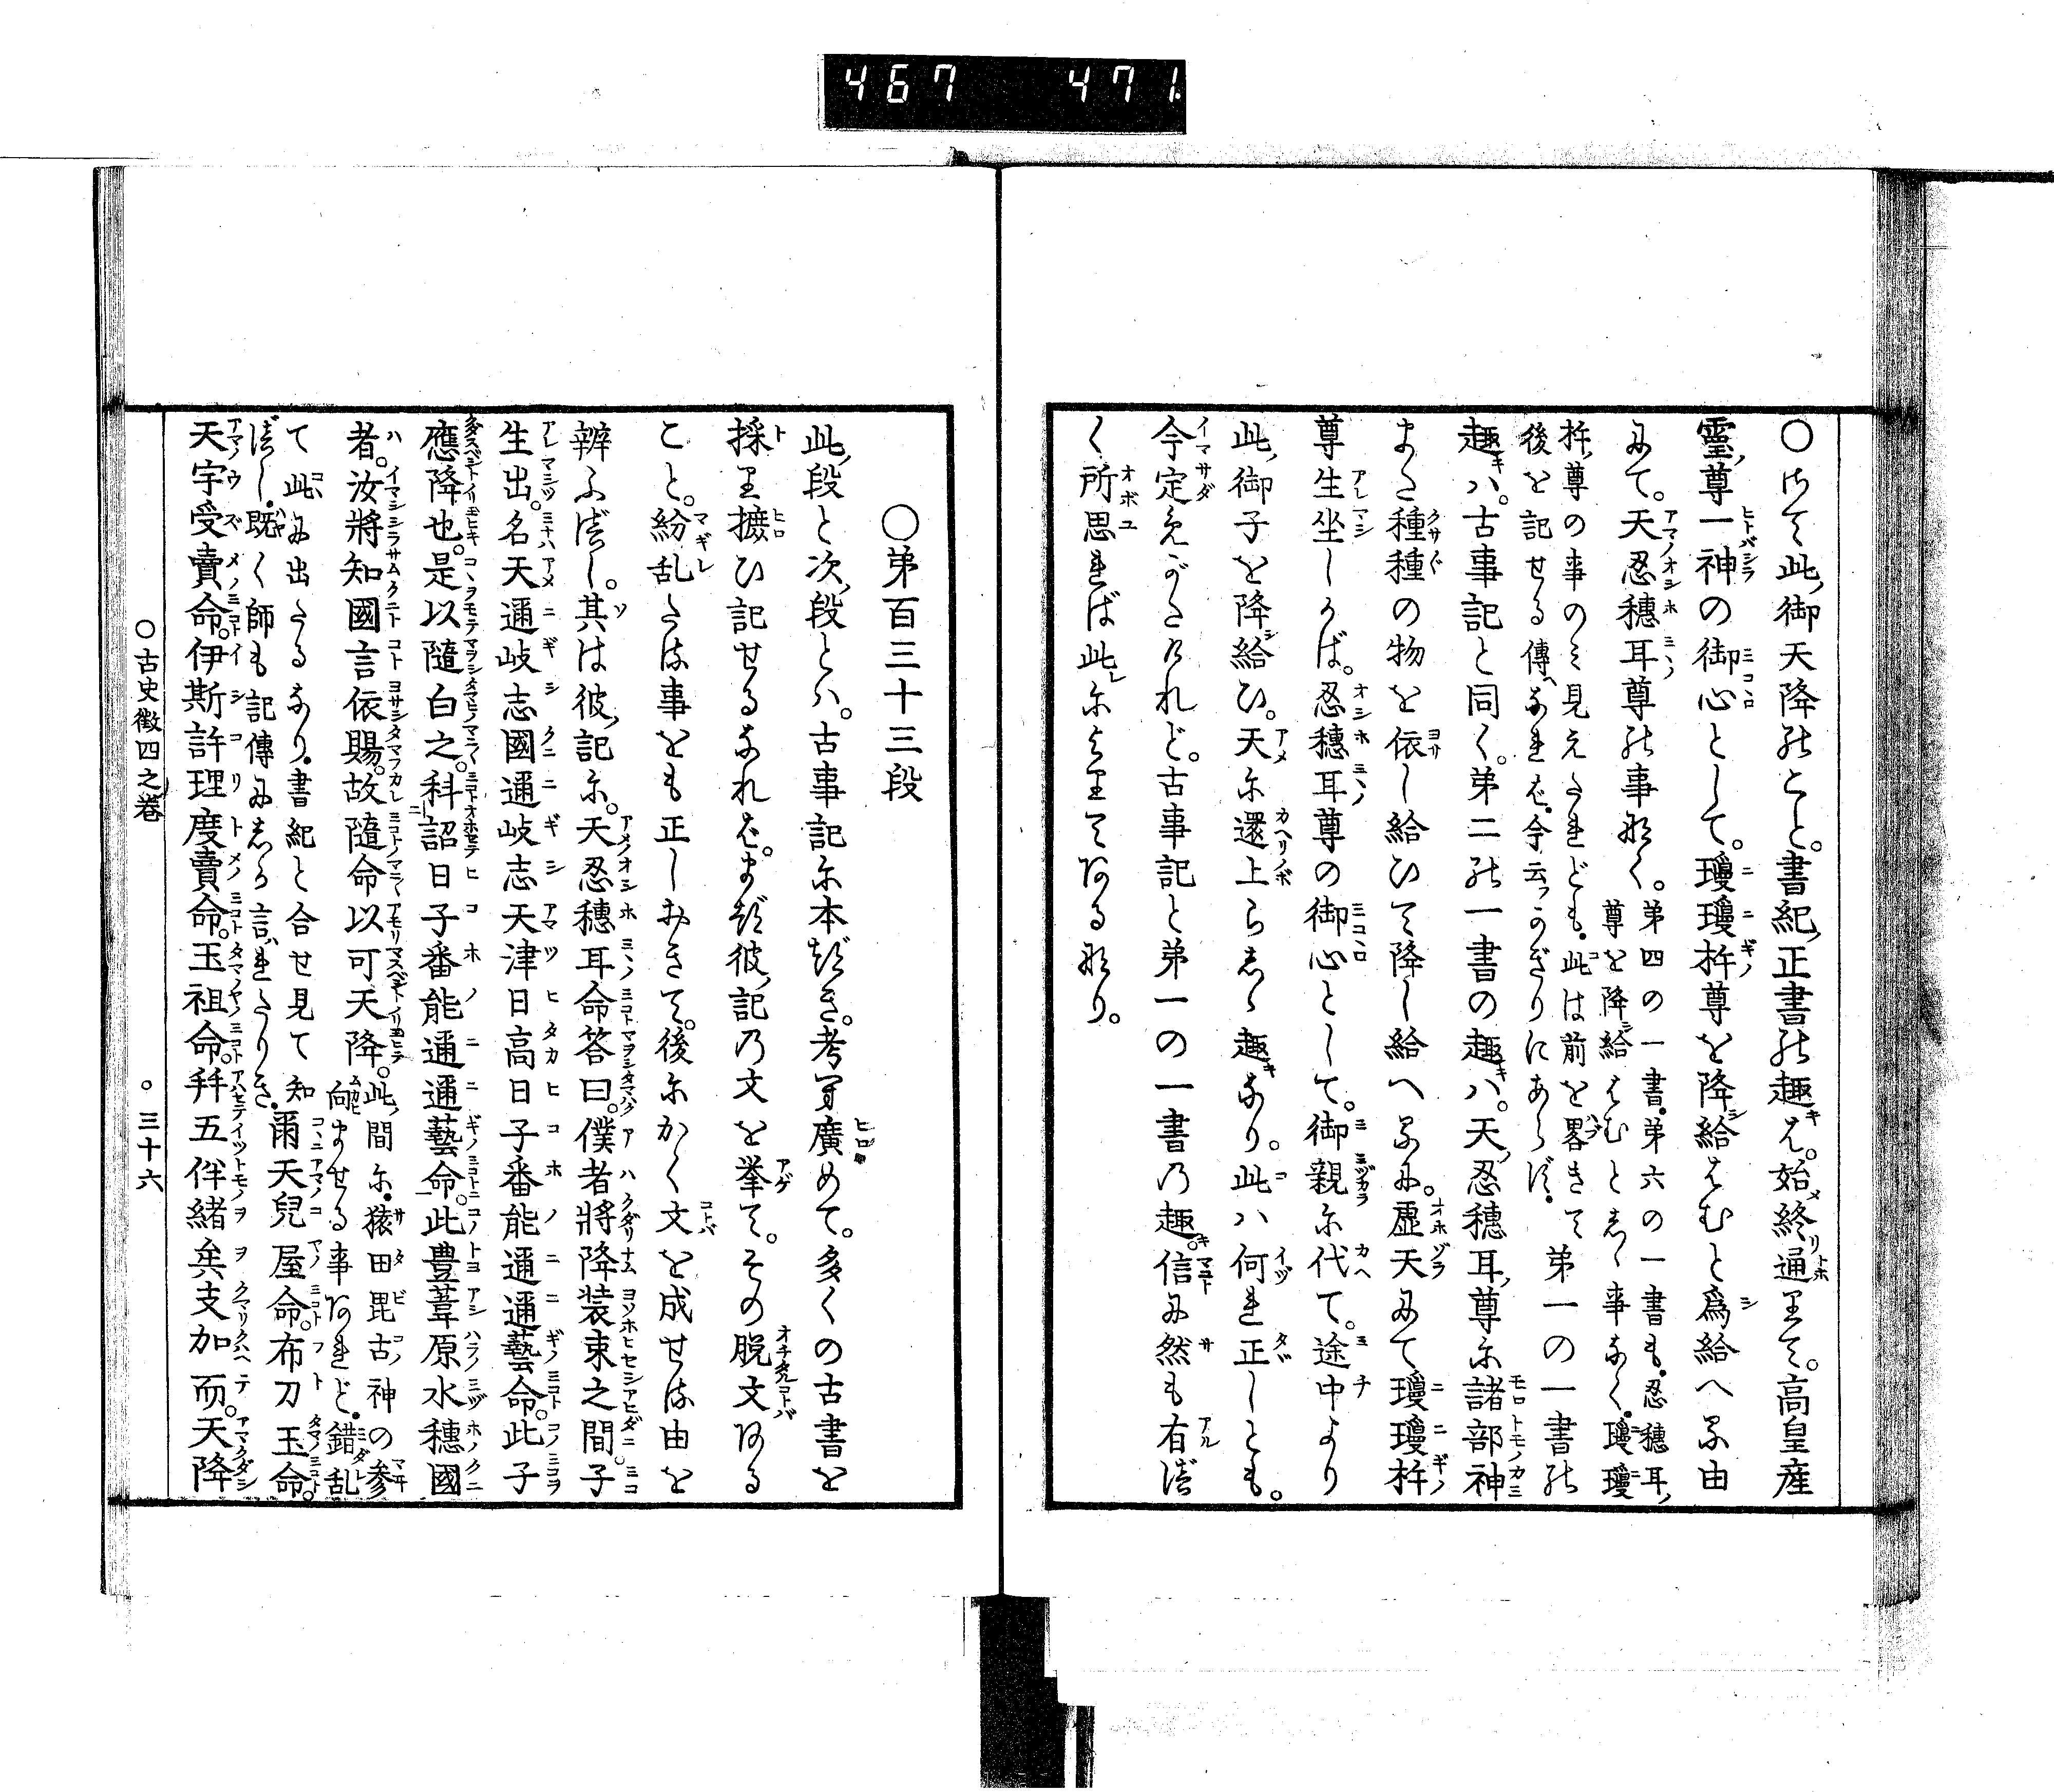 467 471
〇さて此御天降のこと。書紀正書の趣は。始終通りて。高皇産
霊尊一神の御心として。瓊瓊杵尊を降給はむと為給へる由
にて。天忍穂耳尊の事なく。第四の一書。第六の一書も。忍穂耳
尊を降給はむとしゝ事なく。瓊瓊
杵尊の事のみ見えたれども。此は前を畧きて
後を記せる傳なれば。今云かぎりにあらず。第一の一書の
趣ハ。古事記と同く。第二の一書の趣ハ。天忍穂耳尊に諸部神
また種種の物を依し給ひて降し給へるに。虚天にて瓊瓊杵
尊生坐しかば。忍穂耳尊の御心として。御親に代て。途中より
此御子を降給ひ。天に還上らしゝ趣なり。此ハ何れ正しとも。
今定めがたけれど。古事記と第一の一書乃趣。信に然も有べ
く所思れば此によりてあるなり。
〇第百三十三段
此段と次段とハ。古事記に本づき。考へ廣めて。多くの古書を
採り摭ひ記せるなれば。まづ彼記乃文を挙て。その脱文ある
こと。紛乱たる事をも正しおきて。後にかく文を成せる由を
辨ふべし。其は彼記に。天忍穂耳命答曰。僕者將降装束之間。子
生出。名天邇岐志國邇岐志天津日高日子番能邇邇藝命。此子
應降也。是以隨白之。科詔日子番能邇邇藝命。此豊葦原水穂國
者。汝將知國言依賜。故隨命以可天降。此間に。猿田毘古神の参
向ませる事あれど。錯乱
て此に出たるなり。書紀と合せ見て知
べし。既く師も記傳にしか言れたりき。爾天兒屋命。布刀玉命。
天宇受賣命。伊斯許理度賣命。玉祖命。幷五伴緒矣支加而。天降
〇古史徴四之巻 〇三十六